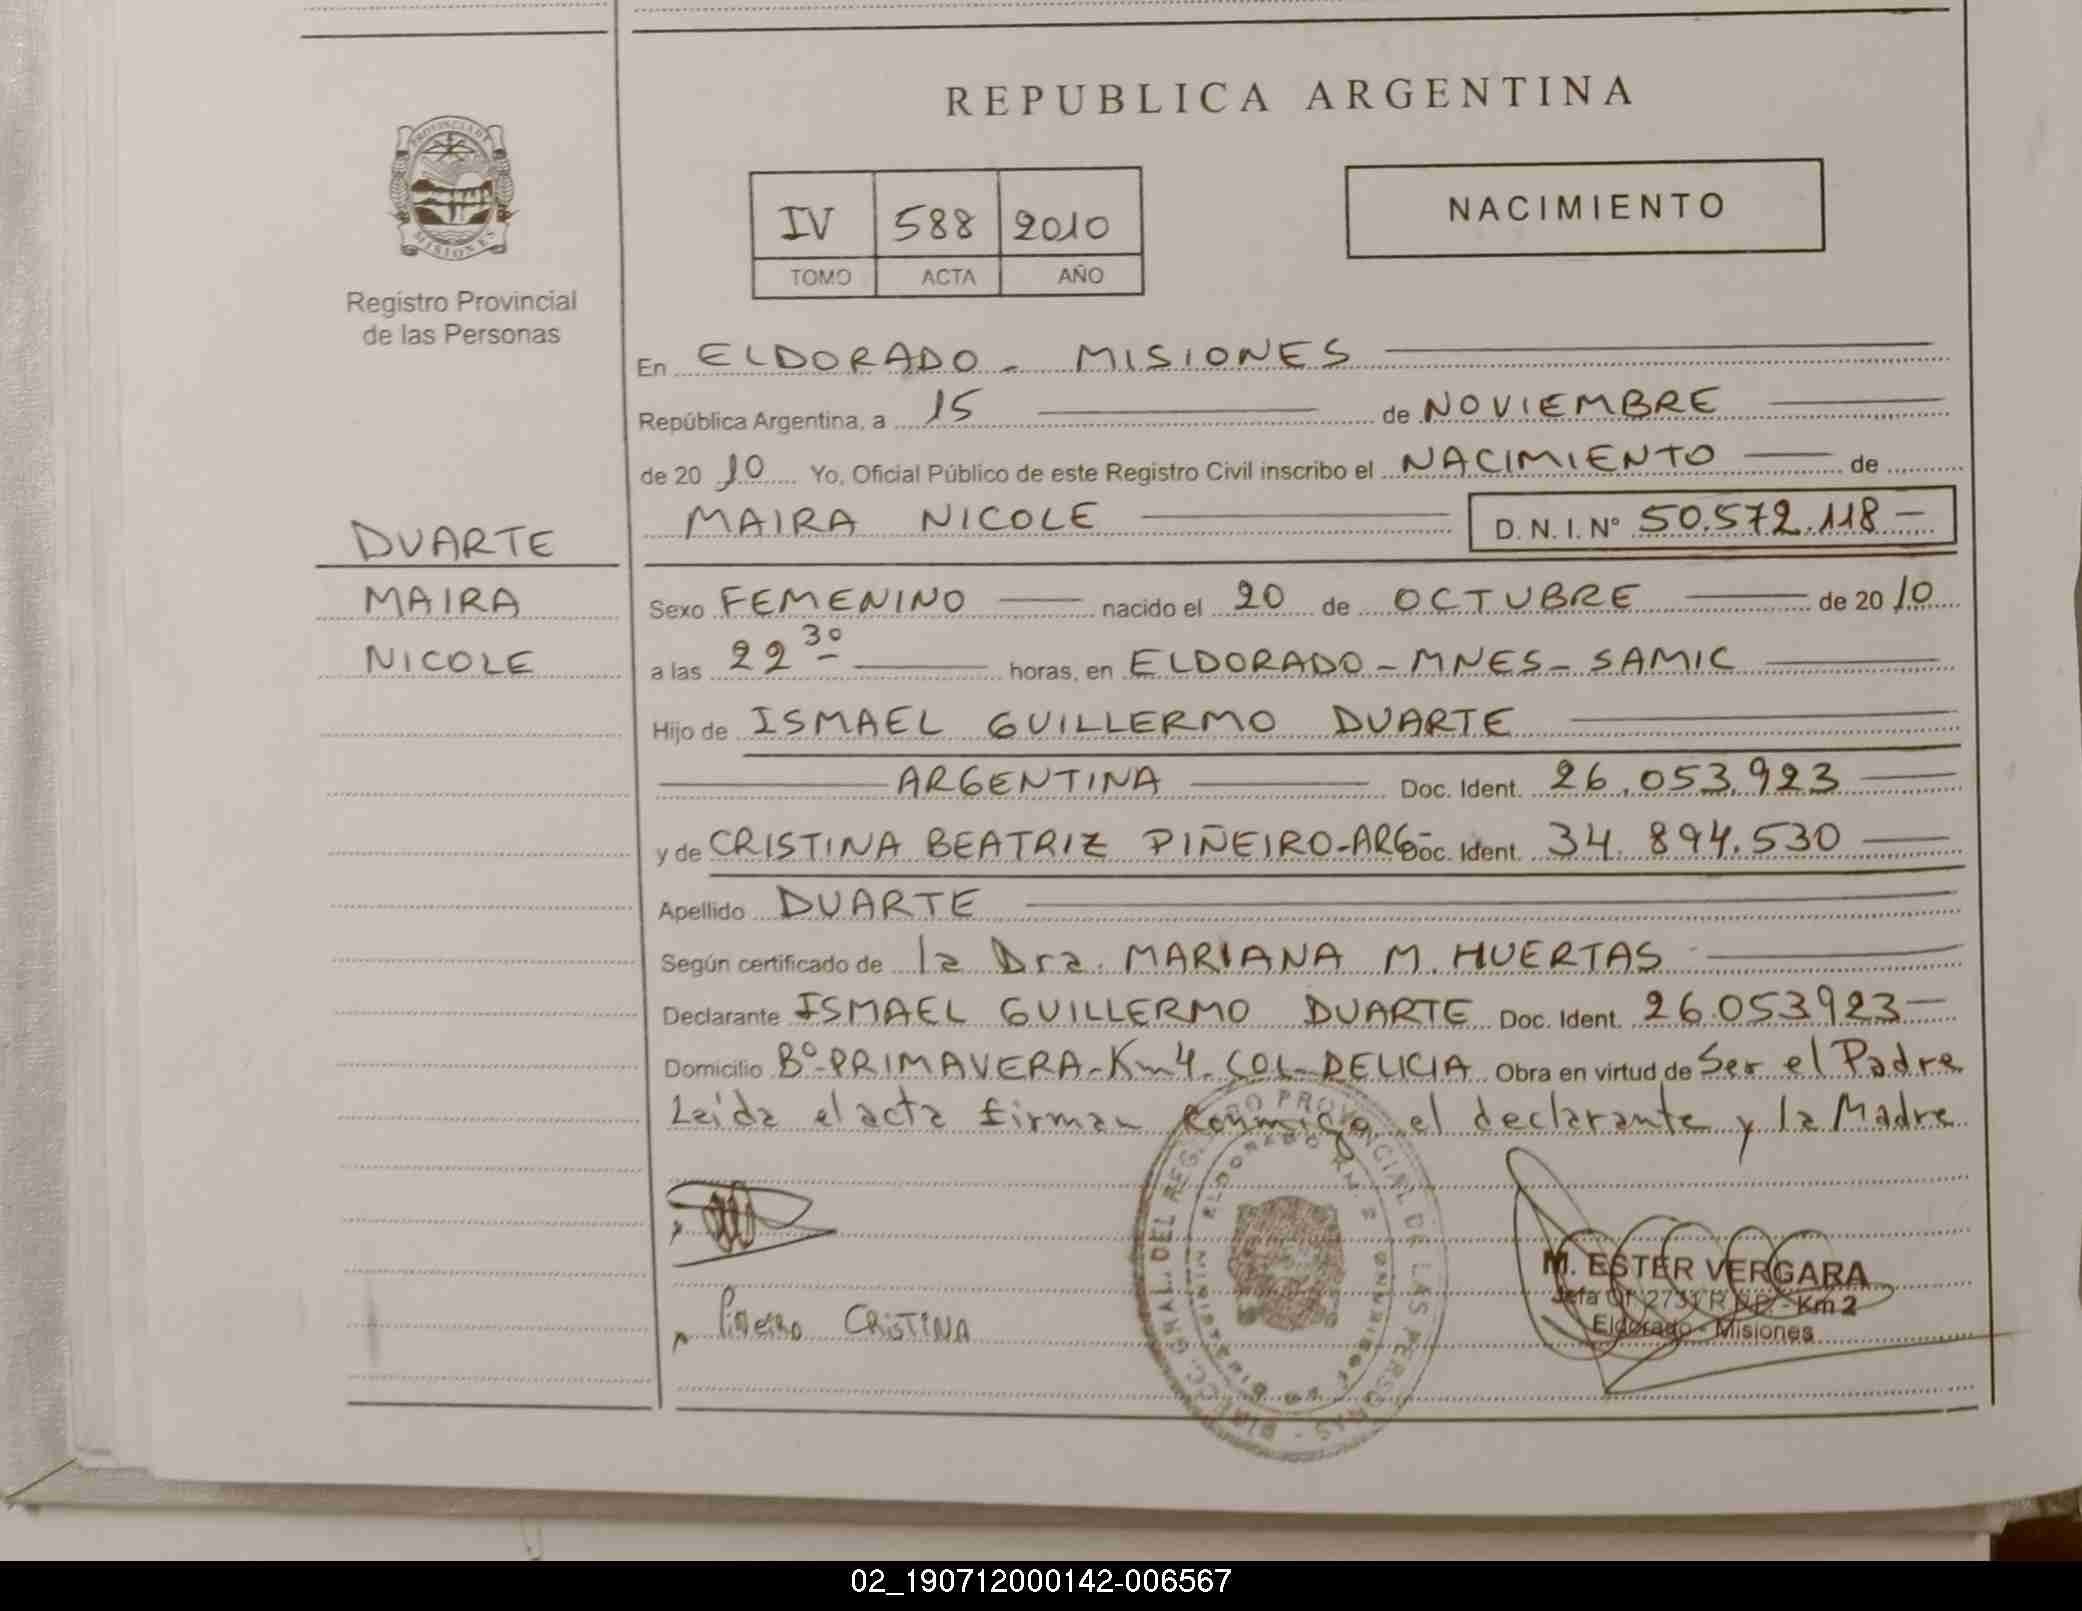 REPUBLICA ARGENTINA
PROVINCIA DE
MISIONES
Registro Provincial
de las Personas
IV 588 2010
TOMO ACTA AÑO
NACIMIENTO
En ELDORADO - MISIONES
República Argentina, a 15 de NOVIEMBRE
de 20 10 Yo, Oficial Público de este Registro Civil inscribo el NACIMIENTO de
MAIRA NICOLE D.N.I.Nº 50.572.118 -
DUARTE
MAIRA
NICOLE
Sexo FEMENINO nacido el 20 de OCTUBRE de 20 10
a las 22 30 horas, en ELDORADO - MNES - SAMIC
Hijo de ISMAEL GUILLERMO DUARTE
ARGENTINA Doc. Ident. 26.053.923
y de CRISTINA BEATRIZ PIÑEIRO-ARG- Doc. Ident. 34.894.530
Apellido DUARTE
Según certificado de la Dra. MARIANA M. HUERTAS
Declarante ISMAEL GUILLERMO DUARTE Doc. Ident. 26.053923-
Domicilio Bº-PRIMAVERA-Km4-COL-DELICIA Obra en virtud de Ser el Padre
Leída el acta firman conmigo el declarante y la Madre
Piñeiro CRISTINA
DIRECC. GRAL. DEL REGISTRO PROVINCIAL DE LAS PERSONAS
ELDORADO KM. 2
M. ESTER VERGARA
Jefa Of. 2731 R.P.P. - Km 2
Eldorado - Misiones
02_190712000142-006567